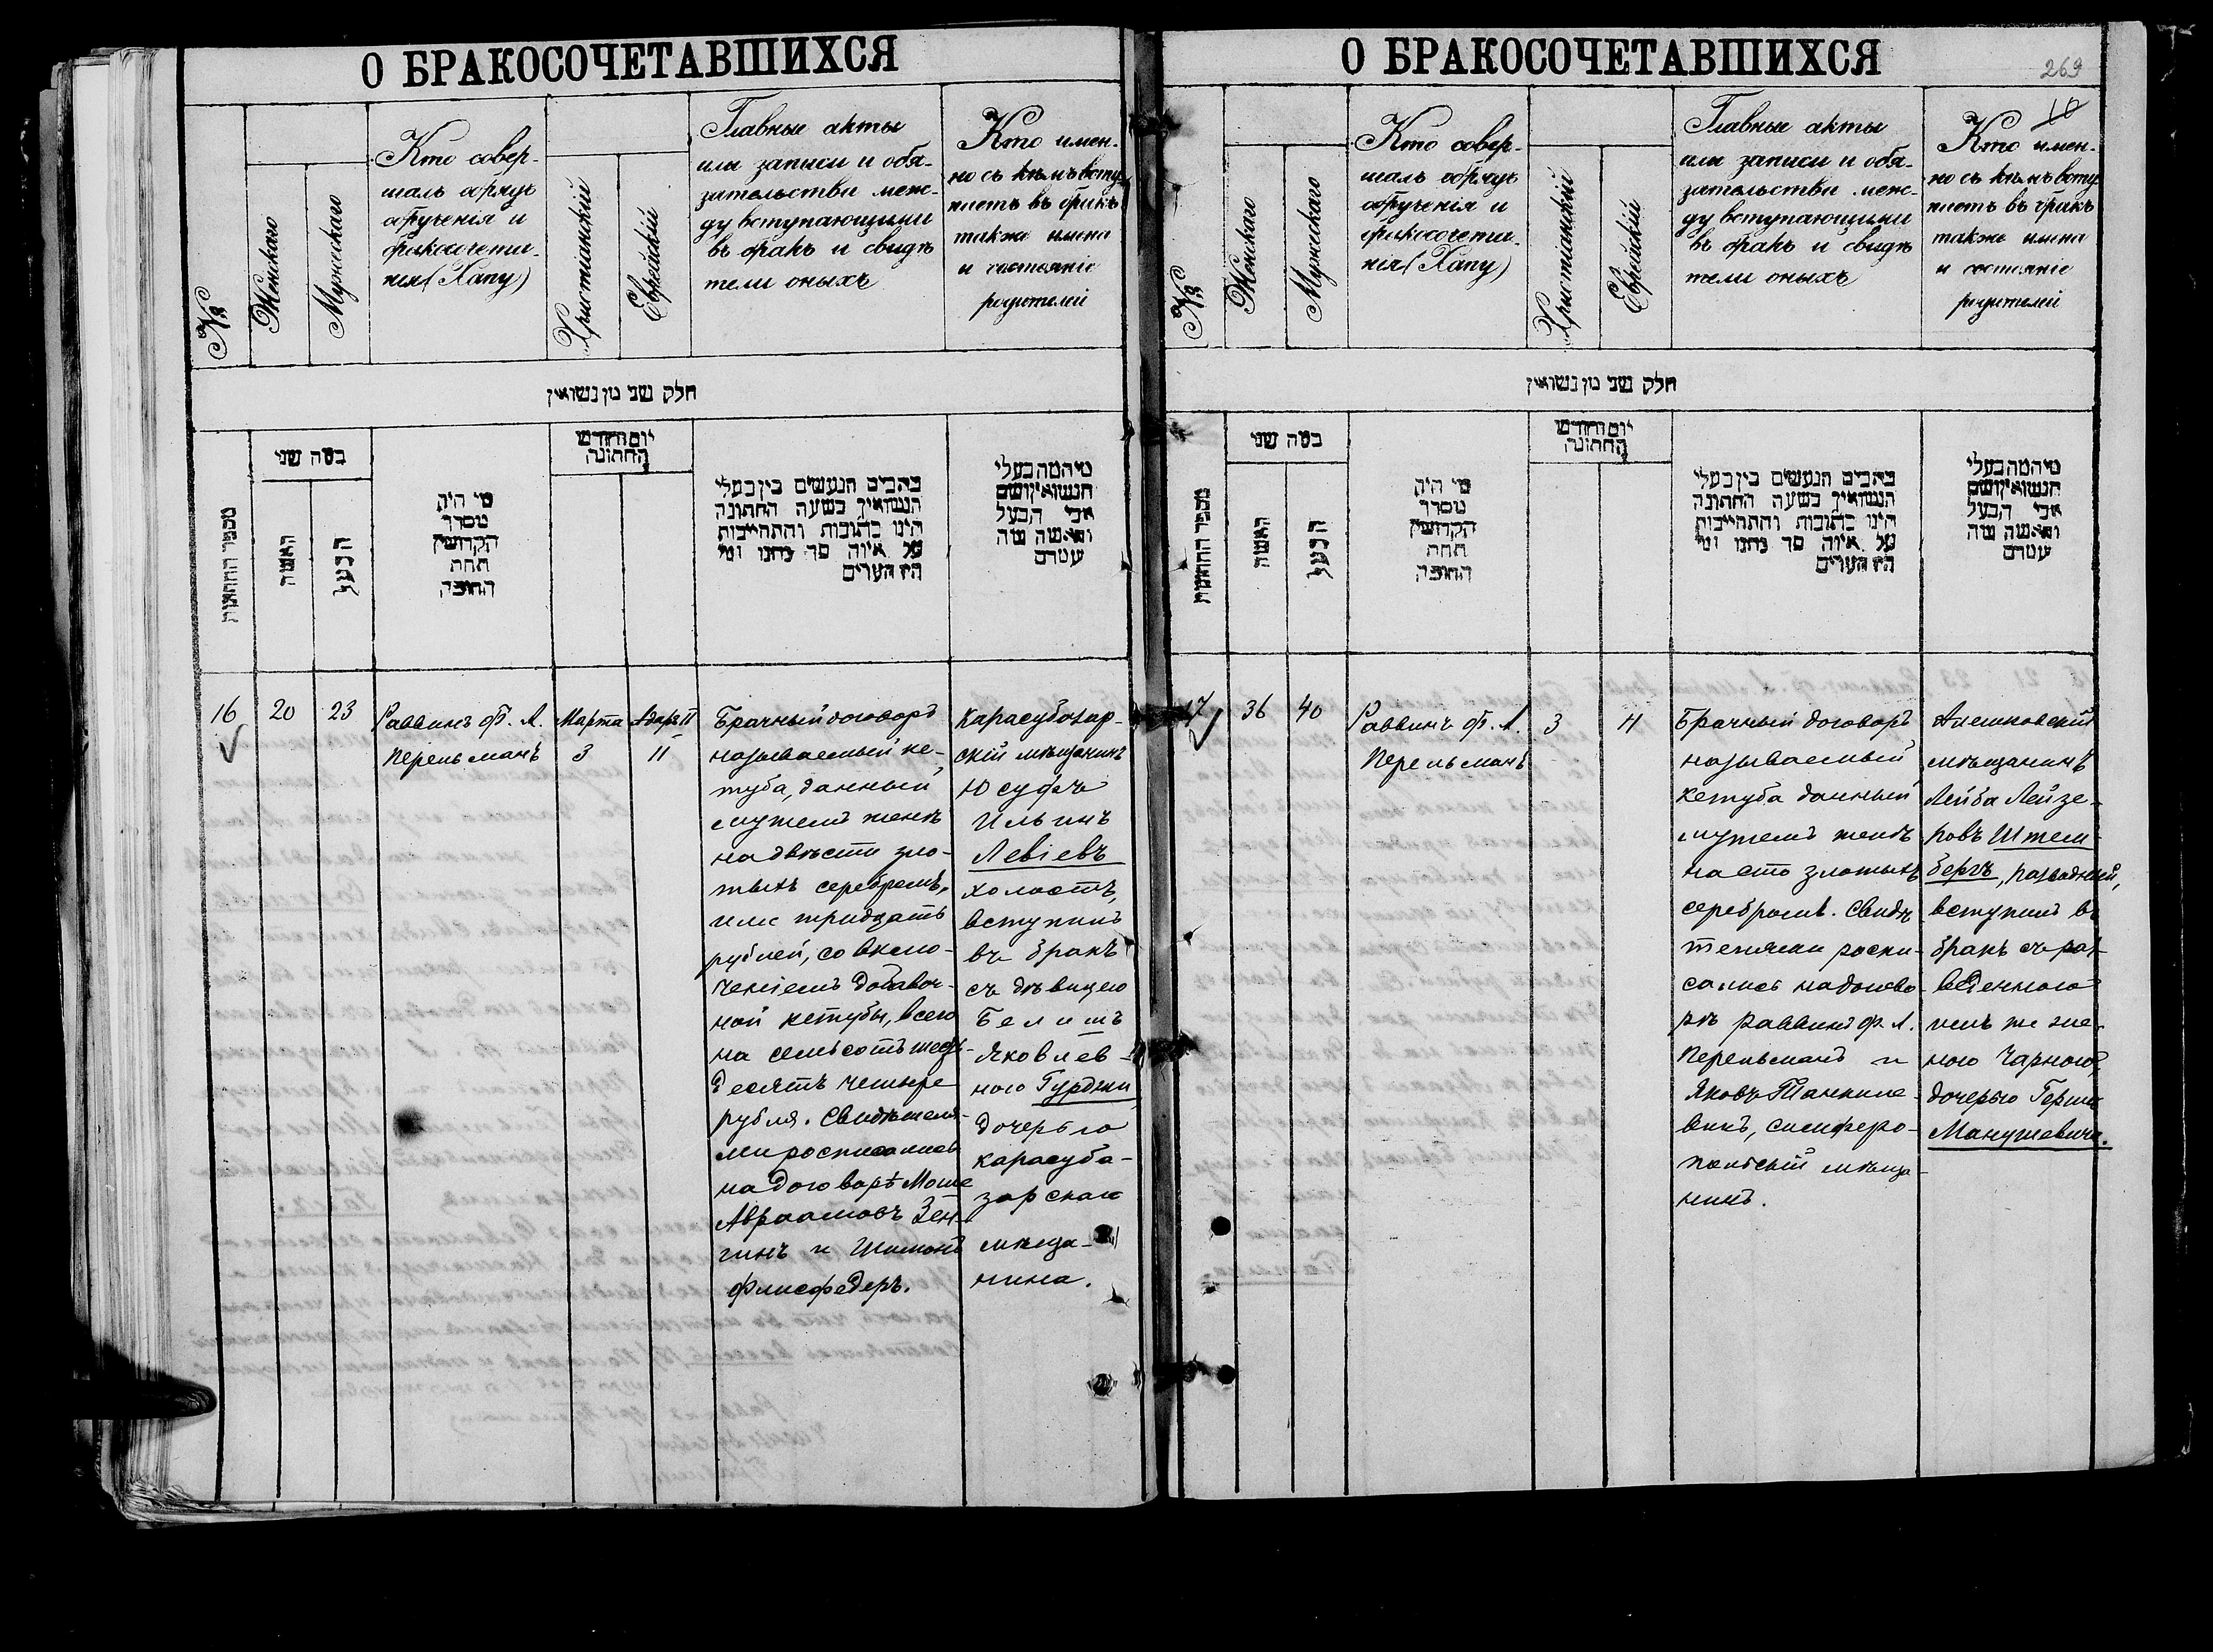 О БРАКОСОЧЕТАВШИХСЯ
№
Женскаго
Мужескаго
Кто совер-
шалъ обрядъ
обрученія и
бракосочета-
нія (Хапу)
Христіанскій
Еврейскій
Главные акты
или записи и обя-
зательства меж-
ду вступающими
въ бракъ и свидѣ
тели оныхъ
Кто имен-
но съ кѣмъ всту
паетъ въ бракъ
также имена
и состояніе
родителей
חלק שני מן נשואין
מספר החתונות
כמה שני
האשה
הבעל
מי היה
מסדר
הקדושין
תחת
החופה
יום וחדש
החתונה
כתבים הנעשים בין בעלי
הנשואין בשעה החתונה
היינו כתובות והתחייבות
על איזה סך נתנו ומי
הם העדים
מי המה בעלי
הנשואין ושם
אבי הבעל
והאשה מה
עטרם
16
20
23
Раввинъ Ф. Л.
Перельманъ
Марта
3
Адаръ II
11
Брачный договоръ
называемый ке-
туба, данный
мужемъ женѣ
на двѣсти зло-
тыхъ серебромъ,
или тридцать
рублей, со вклю-
ченіемъ добавоч-
ной кетубы, всего
на семьсотъ шесть-
десятъ четыре
рубля. Свидѣтеля-
ми росписались
на договорѣ Моше
Авраамовъ Зен-
гинъ и Шимонъ
Флисфедеръ.
Карасубазар-
скій мѣщанинъ
Юсуфъ
Ильинъ
Левіевъ
холостъ,
вступилъ
въ бракъ
съ дѣвицею
Белишъ
Яковлев-
ною Гурджи
дочерью
карасуба-
зарскаго
мѣща-
нина.
О БРАКОСОЧЕТАВШИХСЯ
269
10
№
Женскаго
Мужескаго
Кто совер-
шалъ обрядъ
обрученія и
бракосочета-
нія (Хапу)
Христіанскій
Еврейскій
Главные акты
или записи и обя-
зательства меж-
ду вступающими
въ бракъ и свидѣ
тели оныхъ
Кто имен-
но съ кѣмъ всту
паетъ въ бракъ
также имена
и состояніе
родителей
חלק שני מן נשואין
מספר החתונות
כמה שני
האשה
הבעל
מי היה
מסדר
הקדושין
תחת
החופה
יום וחדש
החתונה
כתבים הנעשים בין בעלי
הנשואין בשעה החתונה
היינו כתובות והתחייבות
על איזה סך נתנו ומי
הם העדים
מי המה בעלי
הנשואין ושם
אבי הבעל
והאשה מה
עטרם
17
36
40
Раввинъ Ф. Л.
Перельманъ
3
11
Брачный договоръ
называемый
кетуба данный
мужемъ женѣ
на сто злотыхъ
серебромъ. Свидѣ
телями роспи-
сались на догово-
рѣ раввинъ Ф. Л.
Перельманъ и
Яковъ
викъ, симферо-
польскій мѣща-
нинъ.
Алешковскій
мѣщанинъ
Лейба Лейзе-
ровъ Штем-
бергъ, разводный,
вступилъ въ
бракъ съ раз-
веденною
имъ же же-
ною Чарною,
дочерью Герша
Манушевича.